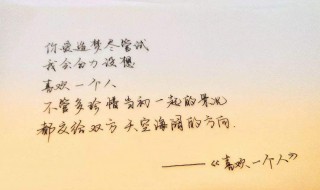 你爱追梦尽管试
我会全力设想
喜欢一个人
不管多珍惜当初一起的景况
都交给双方 天空海阔的方向
——《喜欢一个人》